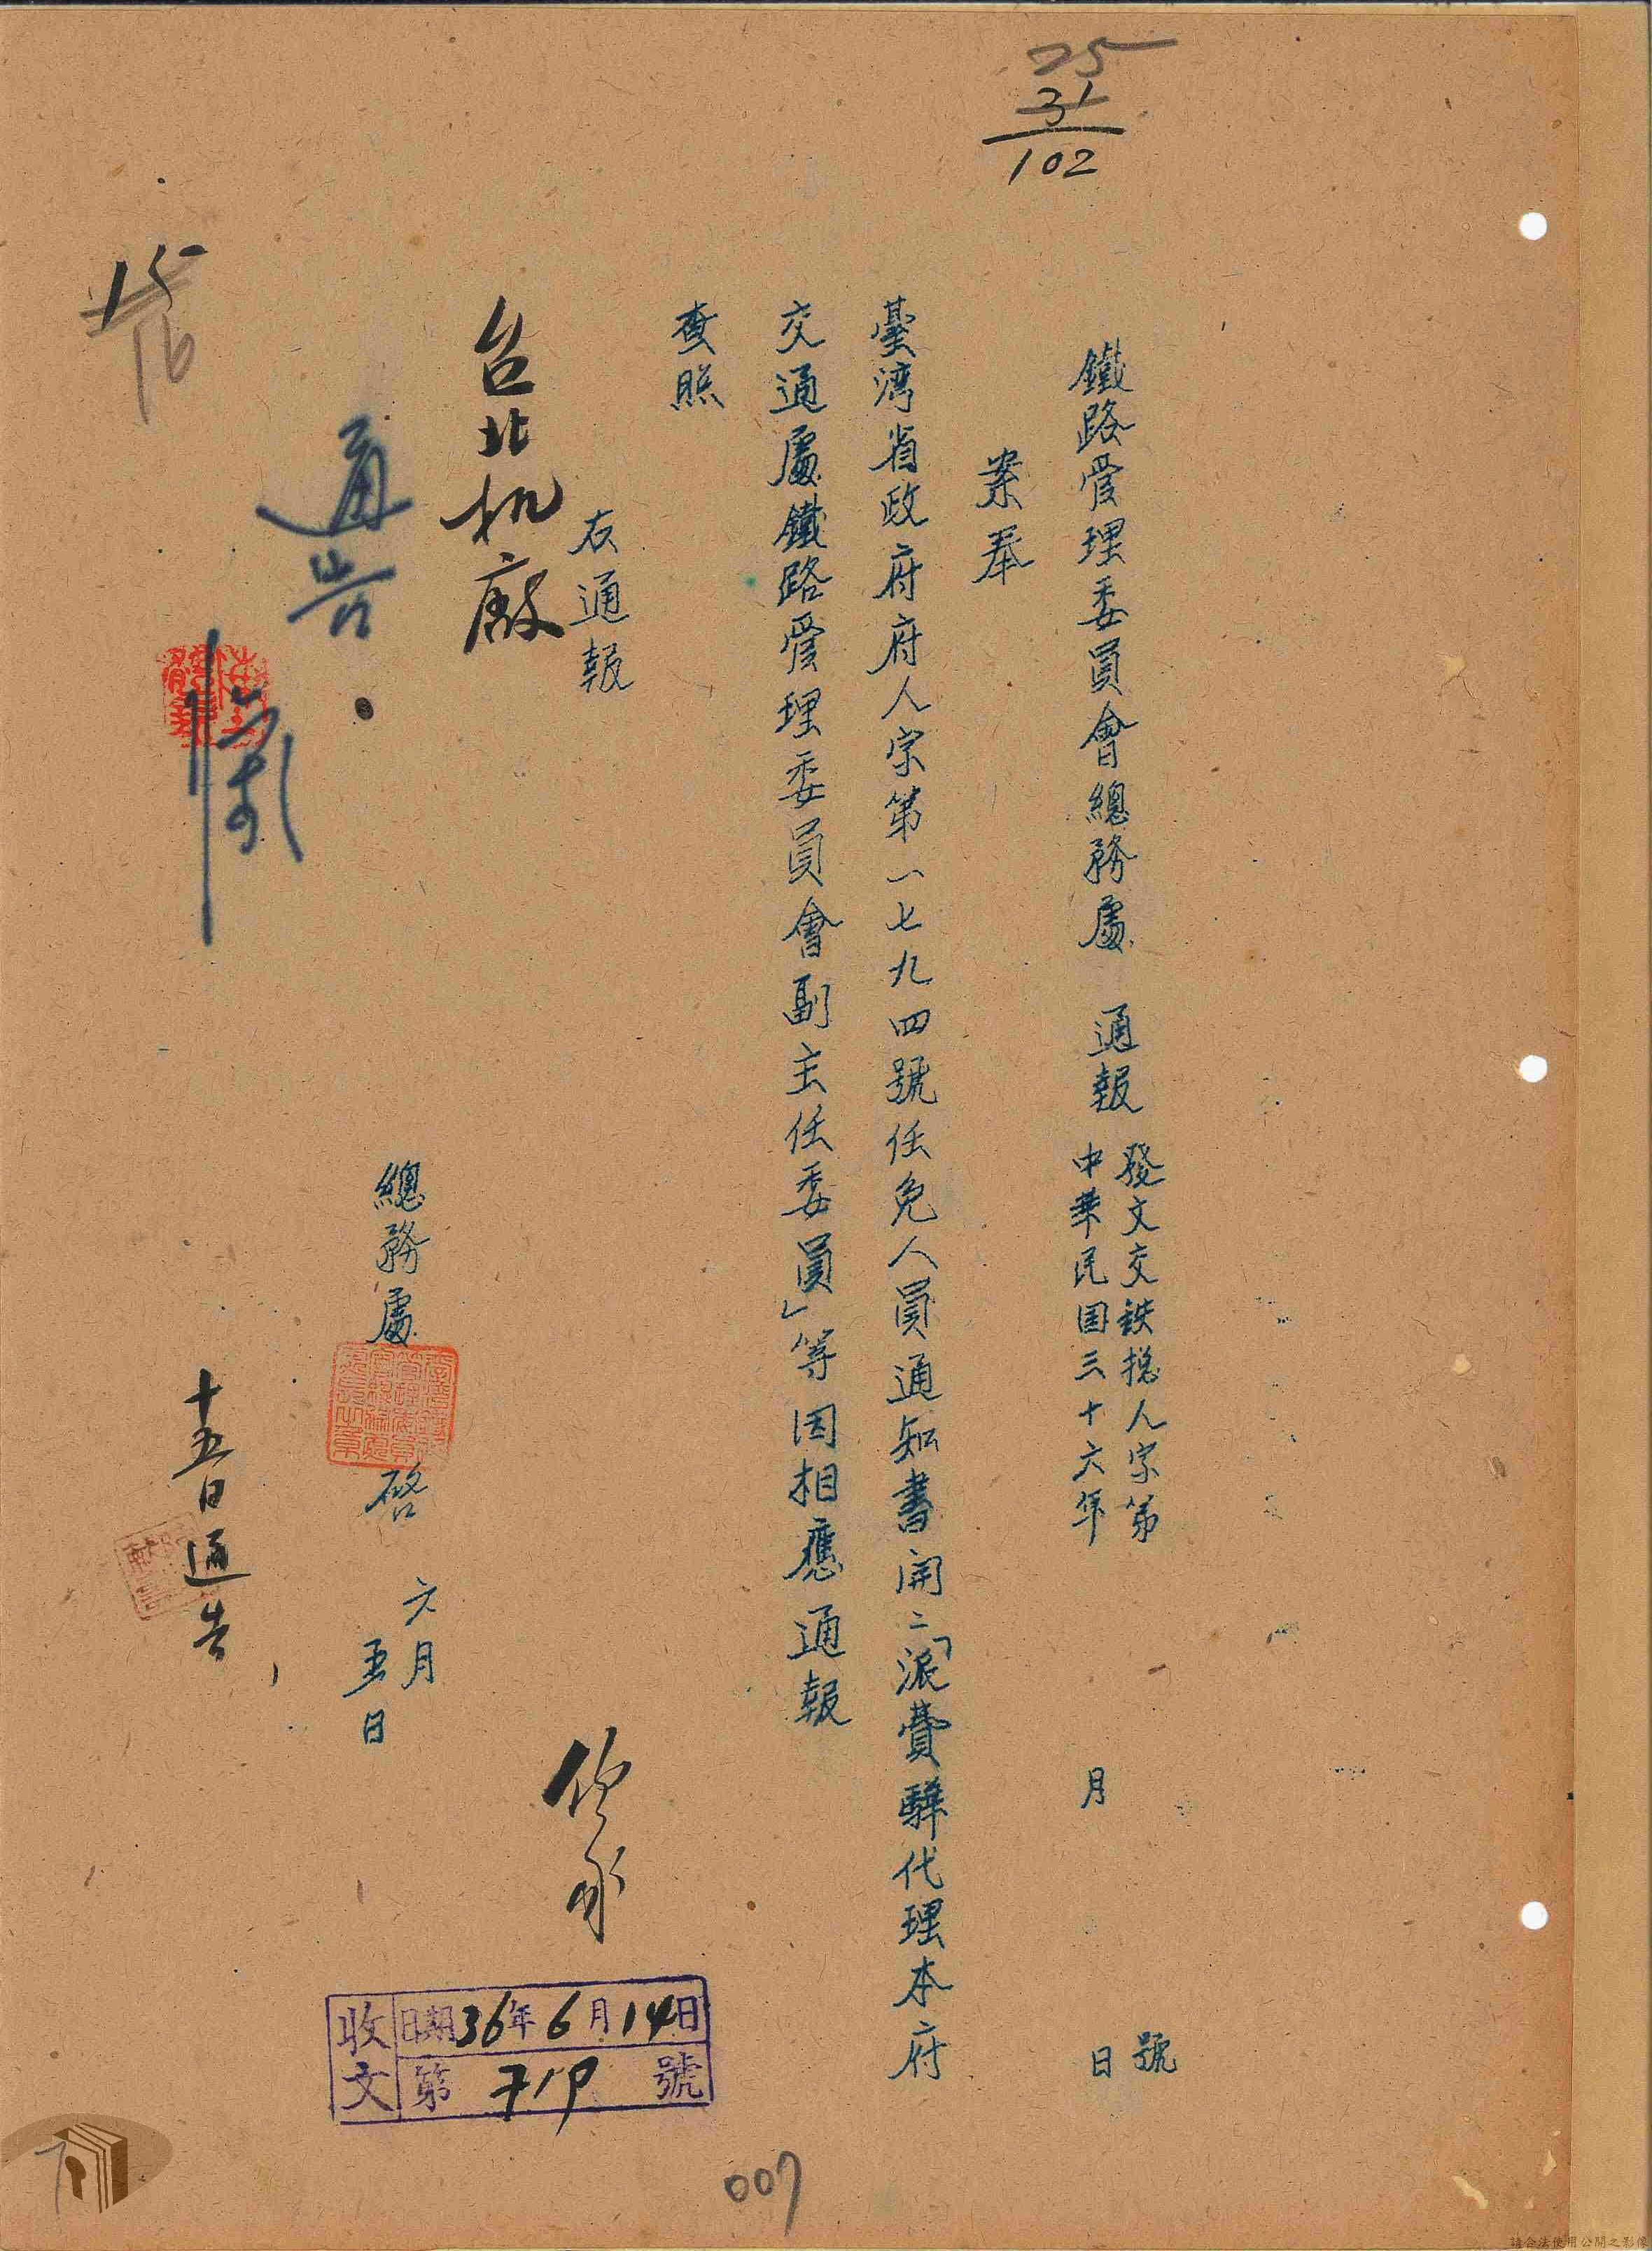 25
31
102
鐵路管理委員會總務處 通報
發文交鉄総人字第 號
中華民国三十六年 月 日
案奉
臺湾省政府府人字第一七九四號任免人員通知書開:「派費驊代理本府
交通處鐵路管理委員會副主任委員」等因相應通報
查照
右通報
台北机廠
總務處 啓 六月
五日
通告
十五日通告
15
16
收文 日期36年6月14日
第 719 號
007
7
請合法使用公開之影像